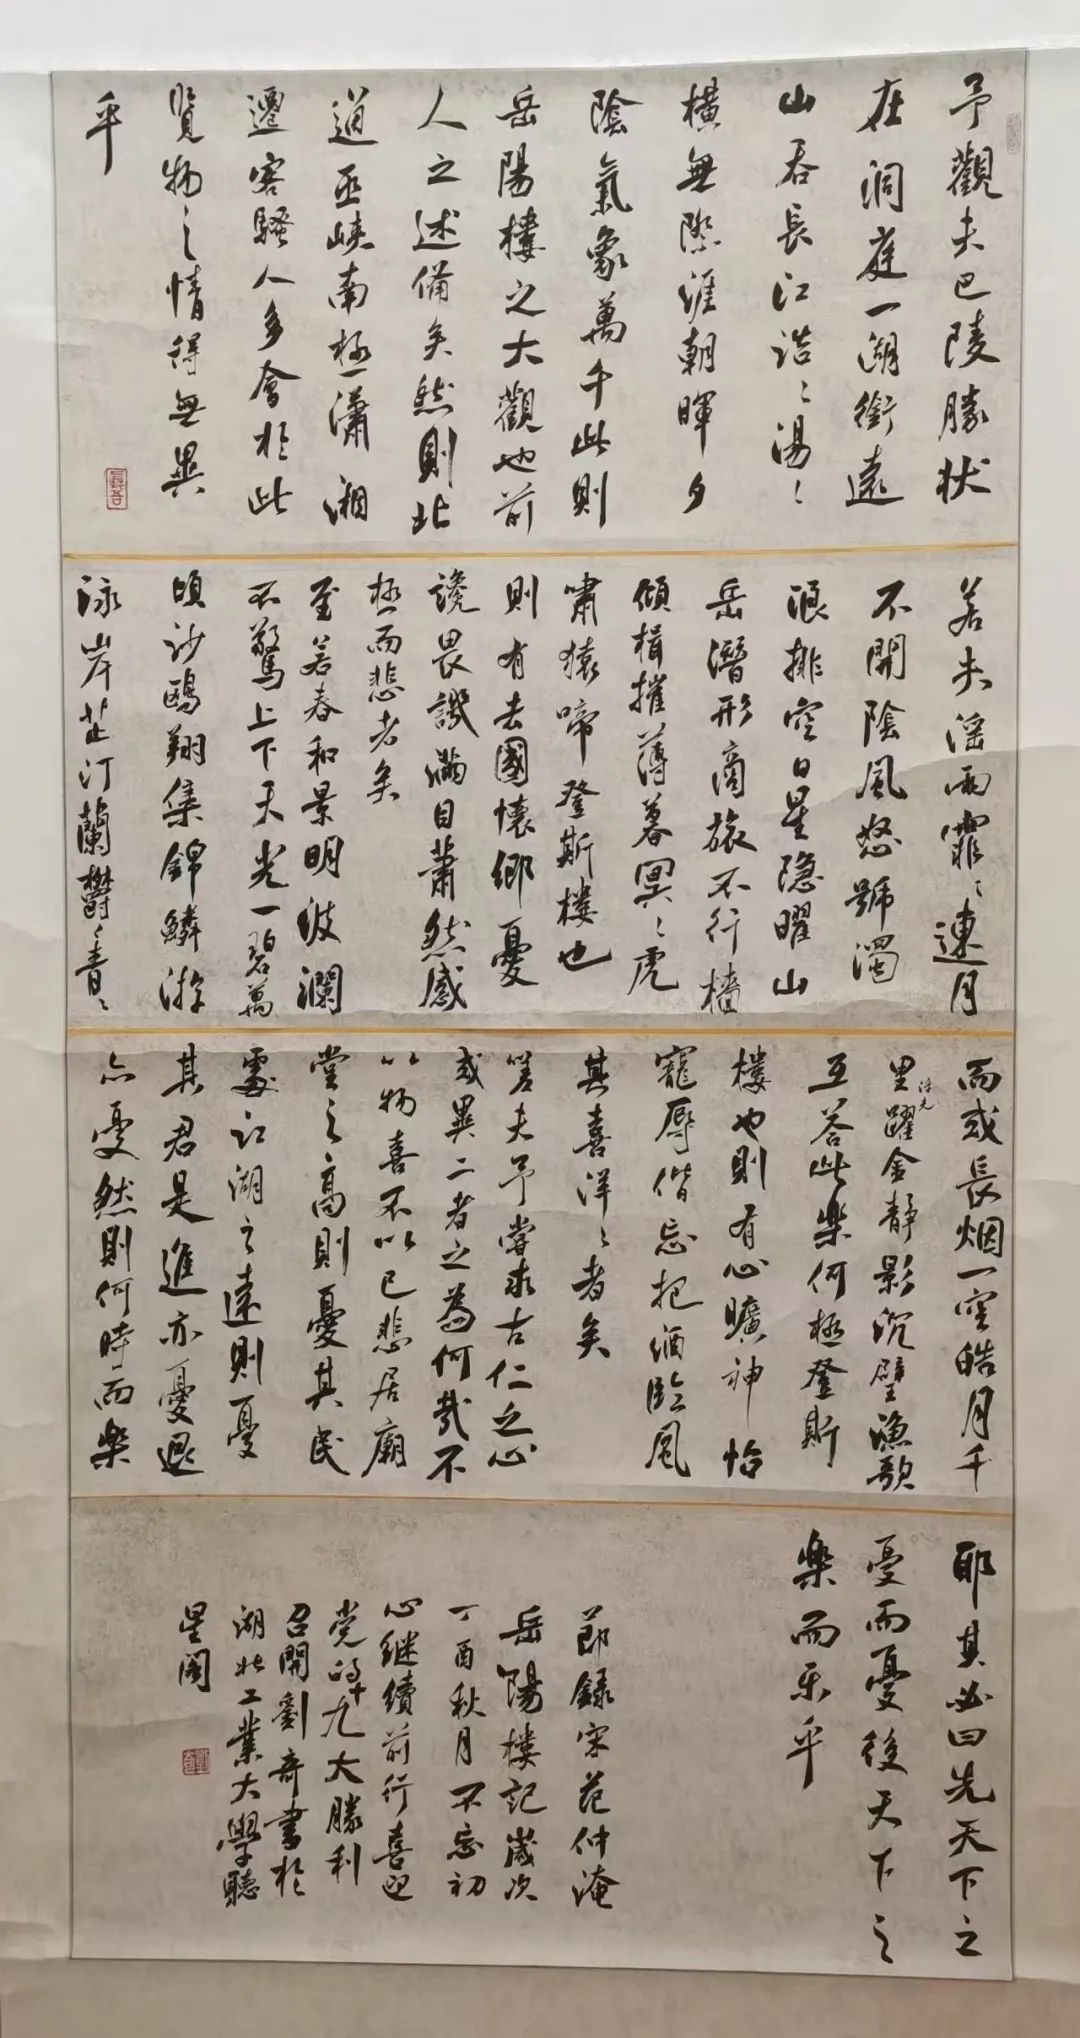 予觀夫巴陵勝狀
在洞庭一湖銜遠
山吞長江浩〻湯〻
橫無際涯朝暉夕
陰氣象萬千此則
岳陽樓之大觀也前
人之述備矣然則北
通巫峽南極瀟湘
遷客騷人多會於此
覽物之情得無異
乎
若夫淫雨霏〻連月
不開陰風怒號濁
浪排空日星隐曜山
岳潛形商旅不行檣
傾楫摧薄暮冥〻虎
嘯猿啼登斯樓也
則有去國懷鄉憂
讒畏譏滿目蕭然感
極而悲者矣
至若春和景明波瀾
不驚上下天光一碧萬
頃沙鷗翔集錦鱗游
泳岸芷汀蘭鬱〻青〻
而或長烟一空皓月千
里躍金靜影沉璧漁歌
浮光
互答此樂何極登斯
樓也則有心曠神怡
寵辱偕忘把酒臨風
其喜洋〻者矣
嗟夫予嘗求古仁之心
或異二者之為何哉不
以物喜不以己悲居廟
堂之高則憂其民
處江湖之遠則憂
其君是進亦憂退
亦憂然則何時而樂
耶其必曰先天下之
憂而憂後天下之
樂而乐乎
節錄宋范仲淹
岳陽樓記歲次
丁酉秋月不忘初
心继續前行喜迎
党的十九大勝利
召開劉奇書於
湖北工業大學聽
星阁